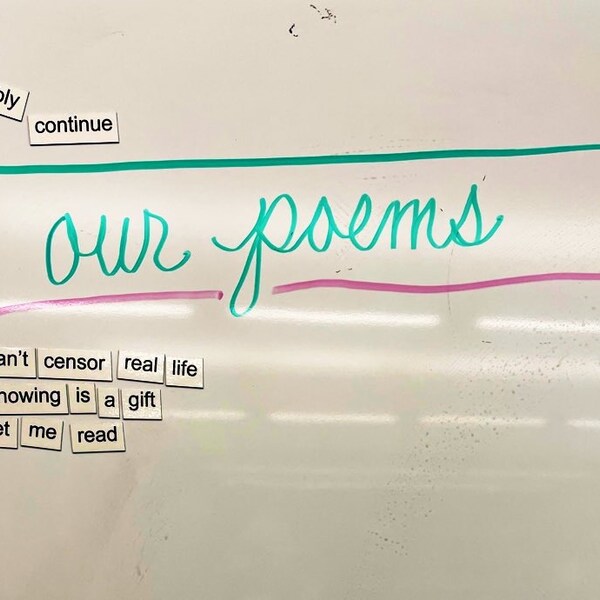 continue
our poems
an't censor real life
nowing is a gift
et me read